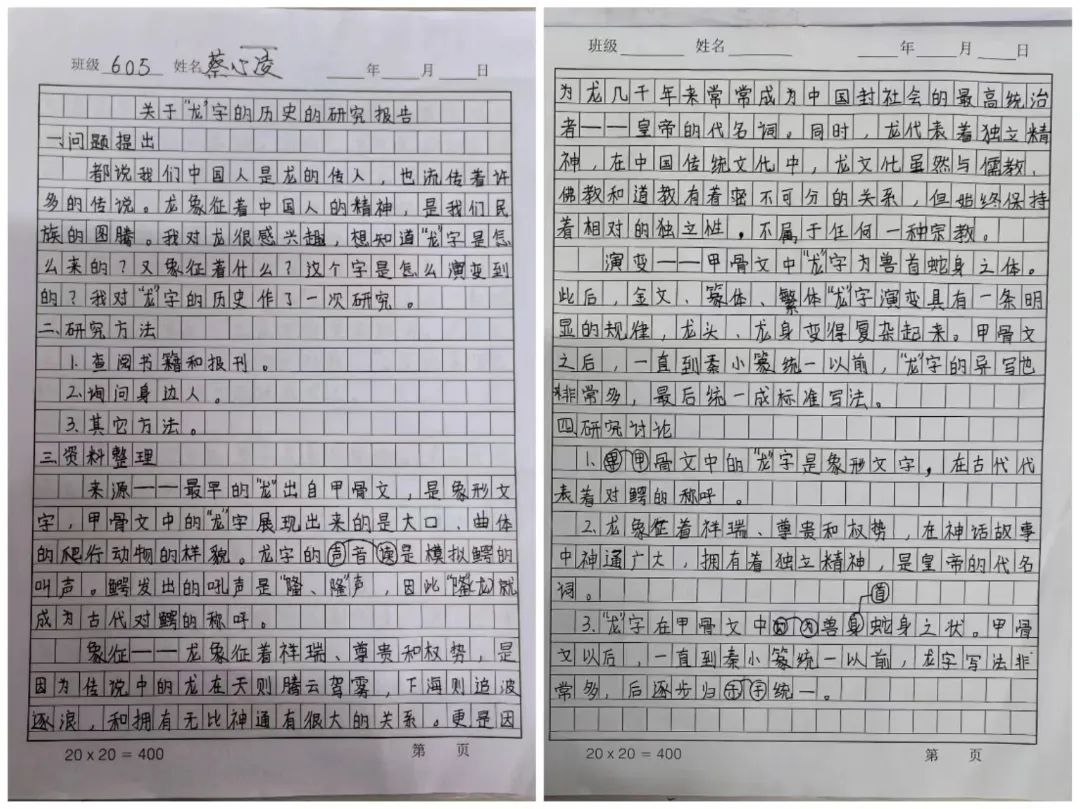 班级 605 姓名 蔡心凌 年 月 日
关于“龙”字的历史的研究报告
一、问题提出
都说我们中国人是龙的传人，也流传着许
多的传说。龙象征着中国人的精神，是我们民
族的图腾。我对龙很感兴趣，想知道“龙”字是怎
么来的？又象征着什么？这个字是怎么演变到
的？我对“龙”字的历史作了一次研究。
二、研究方法
1.查阅书籍和报刊。
2.询问身边人。
3.其它方法。
三、资料整理
来源——最早的“龙”出自甲骨文，是象形文
字，甲骨文中的“龙”字展现出来的是大口、曲体
的爬行动物的样貌。龙字的声音读是模拟鳄的
叫声。鳄发出的吼声是“隆、隆”声，因此“隆”(龙)就
成为古代对鳄的称呼。
象征——龙象征着祥瑞、尊贵和权势，是
因为传说中的龙在天则腾云驾雾，下海则追波
逐浪，和拥有无比神通有很大的关系。更是因
20×20=400 第 页
班级 姓名 年 月 日
为龙几千年来常常成为中国封社会的最高统治
者——皇帝的代名词。同时，龙代表着独立精
神，在中国传统文化中，龙文化虽然与儒教、
佛教和道教有着密不可分的关系，但始终保持
着相对的独立性，不属于任何一种宗教。
演变——甲骨文中“龙”字为兽首蛇身之体。
此后，金文、篆体、繁体“龙”字演变具有一条明
显的规律，龙头、龙身变得复杂起来。甲骨文
之后，一直到秦小篆统一以前，“龙”字的异写也
非常多，最后统一成标准写法。
四、研究讨论
1.甲骨文中的“龙”字是象形文字，在古代代
表着对鳄的称呼。
2.龙象征着祥瑞、尊贵和权势，在神话故事
中神通广大，拥有着独立精神，是皇帝的代名
词。
首
3.“龙”字在甲骨文中为兽身蛇身之状。甲骨
文以后，一直到秦小篆统一以前，龙字写法非
常多，后逐步归于统一。
20×20=400 第 页